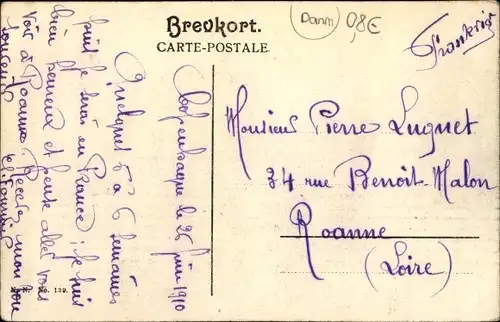 Brevkort.
CARTE-POSTALE.
(Danm) 0,8€
Frankrig
Copenhague le 26 juin 1910
Quelques 5 à 6 semaines
puis je serai en France; je suis
bien heureux et peux aller vous
voir à Roanne. Recevez mon bon
souvenir
Monsieur Pierre Luguet
34 rue Benoit-Malon
Roanne
(Loire)
No. 139.